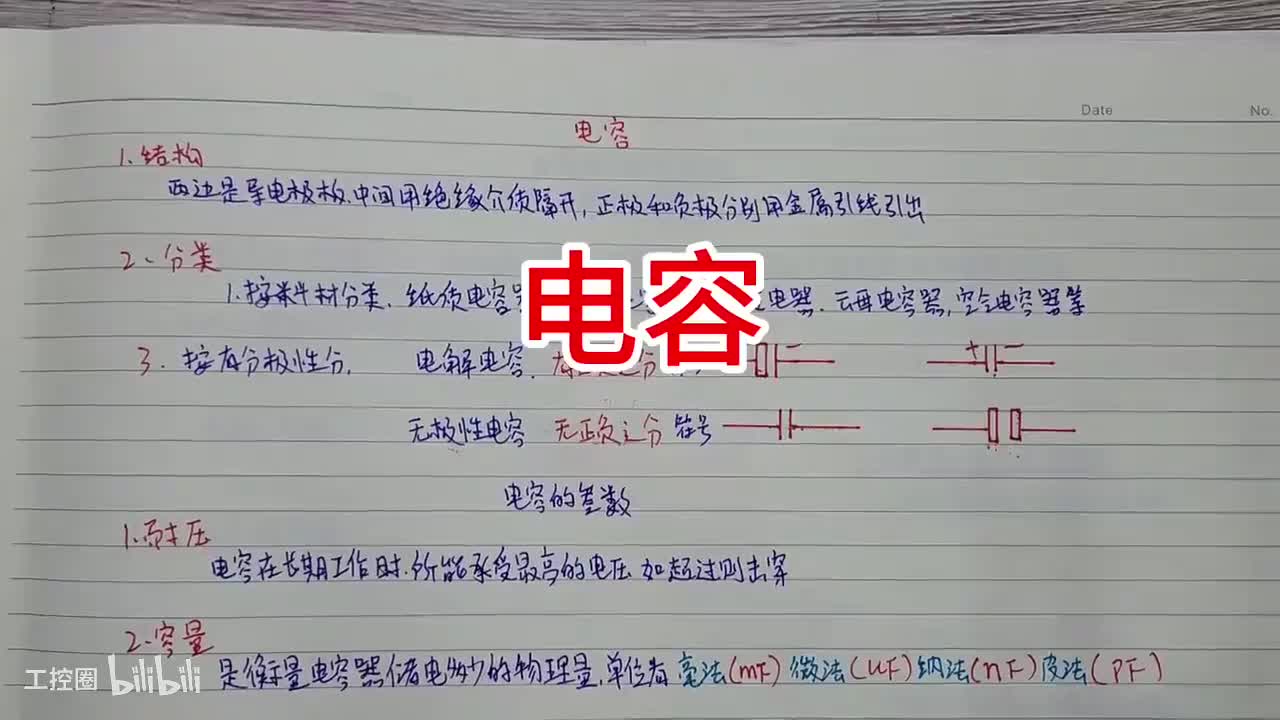 Date No.
电容
1.结构
两边是导电极板.中间用绝缘介质隔开,正极和负极分别用金属引线引出
2、分类
1.按
材分类、纸质电容
电器.云母电容器,空气电容器等
电容
3. 按有分极性分, 电解电容.
+ − −
无极性电容 无正负之分 符号
电容的差数
1.耐压
电容在长期工作时.所能承受最高的电压 如超过则击穿
2.容量
是衡量电容器储电多少的物理量,单位有 毫法(mF) 微法(uF) 纳法(nF) 皮法(PF)
工控圈 bilibili